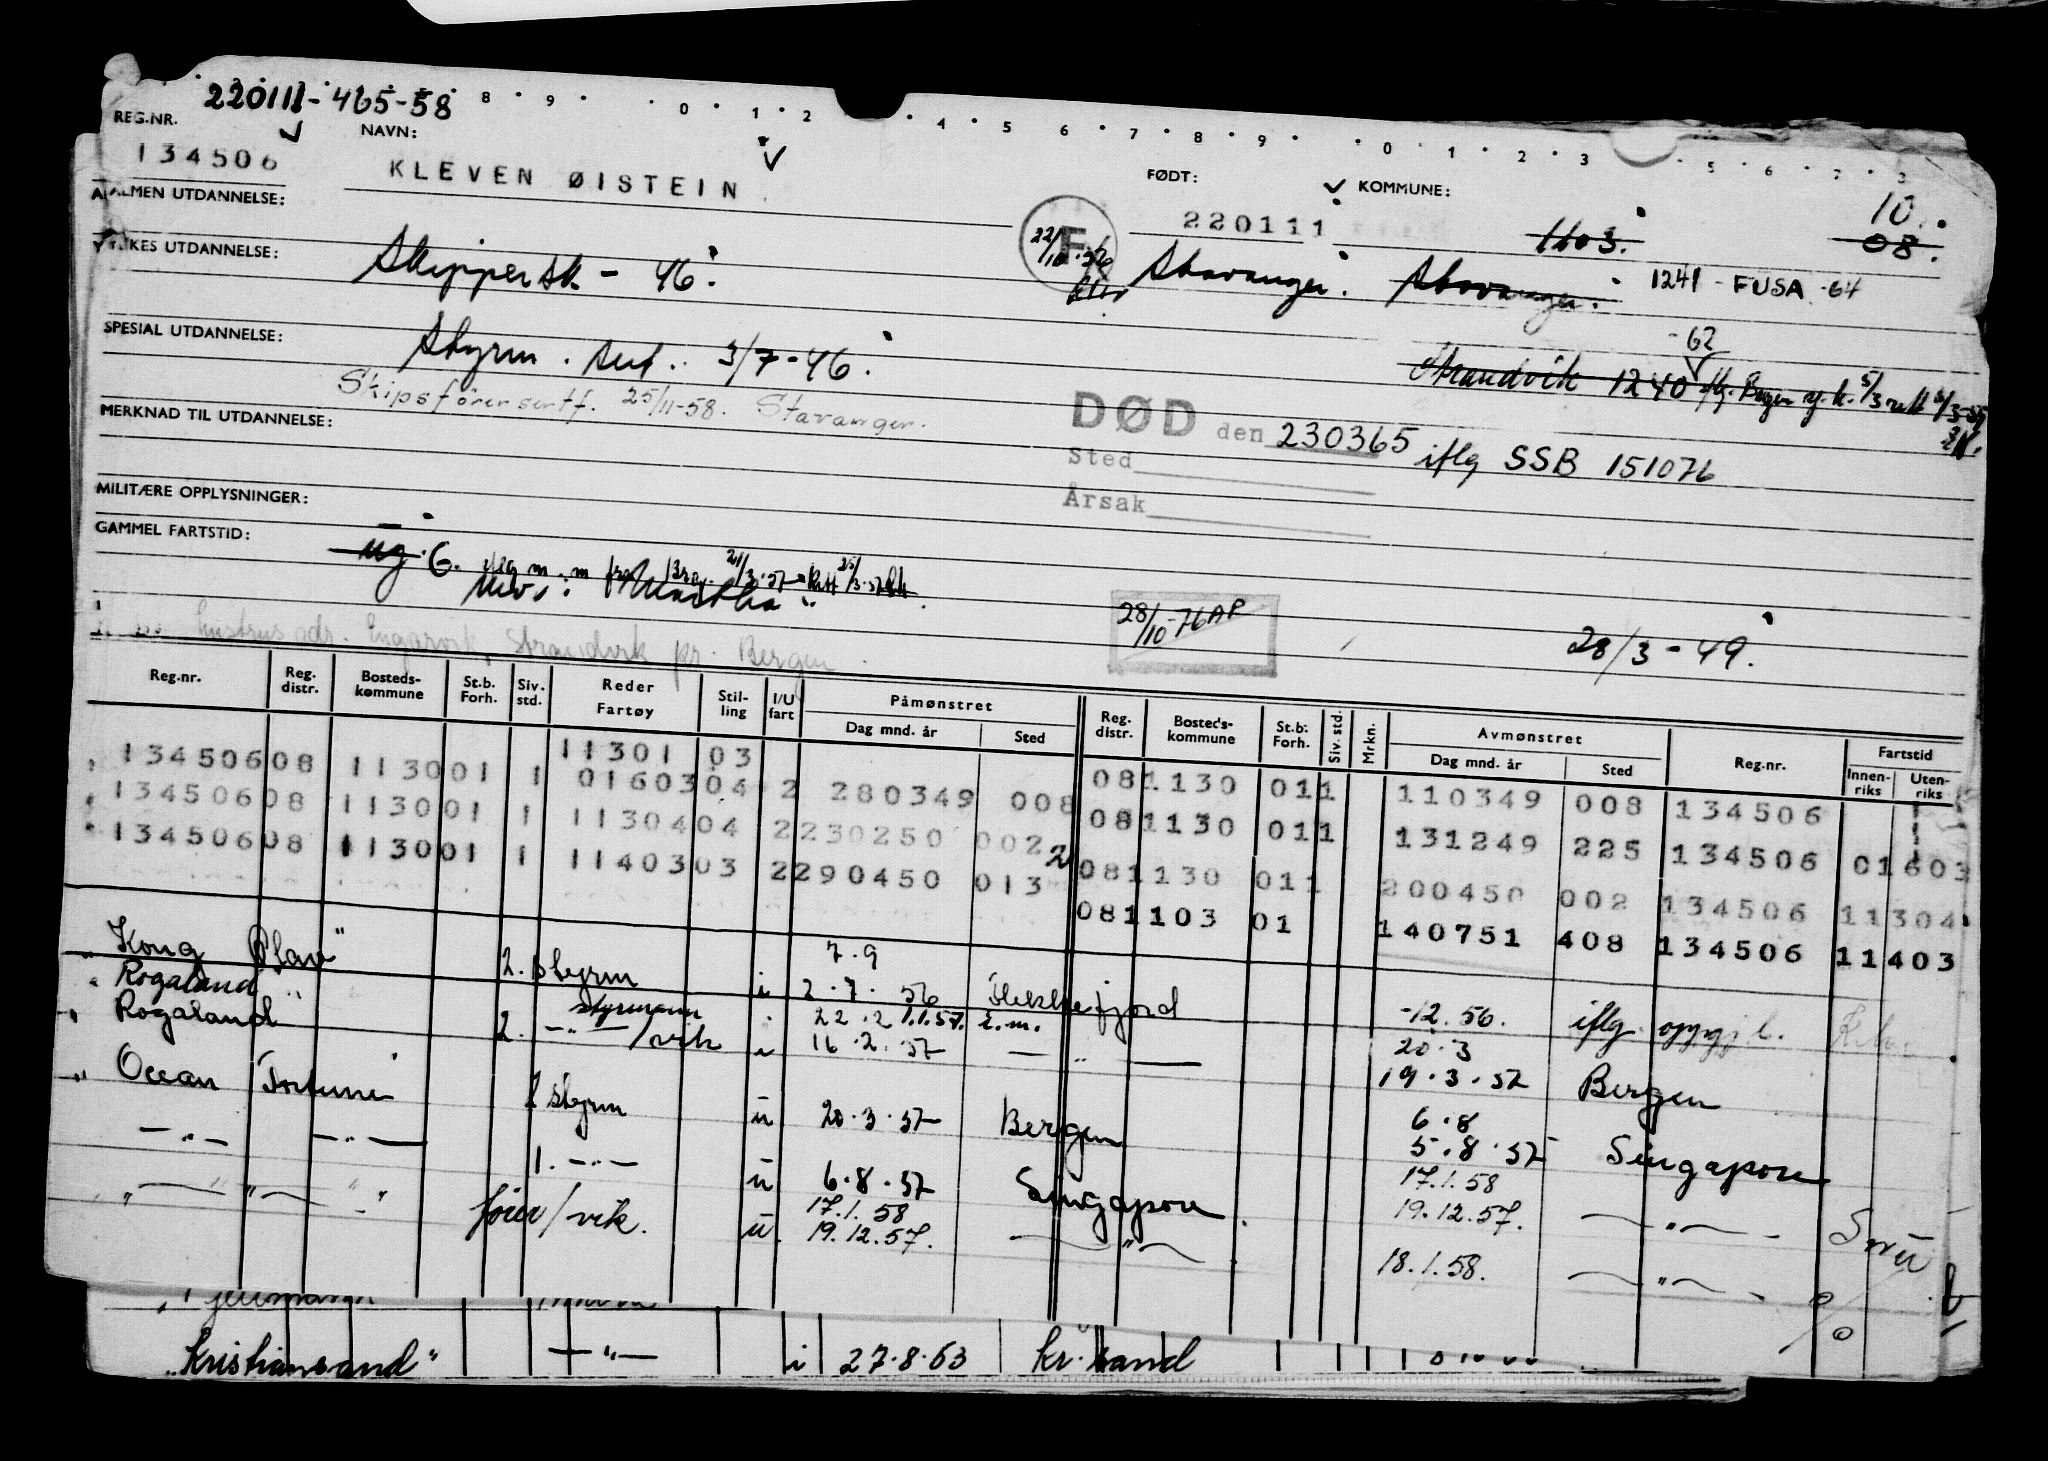 220111-465-58
8 9 0 1 2 4 5 6 7 8 9 0 1 2 3 5 6 7
REG.NR.
NAVN:
134506
KLEVEN ØISTEIN
FØDT:
KOMMUNE:
220111
1103.
10.
08.
ALMEN UTDANNELSE:
YRKES UTDANNELSE:
Skippersk - 46.
F
22/10.56
Stavanger.
Stavanger.
1241 - FUSA -64
-62
SPESIAL UTDANNELSE:
Styrm. sert. 3/7-46.
Strandvik 1240
Skipsförersertf. 25/11-58. Stavanger.
MERKNAD TIL UTDANNELSE:
DØD den 230365 iflg SSB 151076
Sted
Årsak
MILITÆRE OPPLYSNINGER:
GAMMEL FARTSTID:
ug. G.
28/10-76AP
28/3-49.
hustrus adr. Engarvik, Strandvik pr. Bergen.
Reg.nr. Reg. distr. Bosteds-kommune St.b. Forh. Siv. std. Reder Fartøy Stil-ling I/U fart Påmønstret Dag mnd. år Sted Reg. distr. Bosteds-kommune St.b. Forh. Siv. std. Mrkn. Avmønstret Dag mnd. år Sted Reg.nr. Fartstid Innen-riks Uten-riks
11301 03
134506 08 1130 01 1 01603 04 2 280349 008 08 1130 01 1 110349 008 134506
134506 08 1130 01 1 11304 04 2 230250 002 08 1130 01 1 131249 225 134506 01603
134506 08 1130 01 1 11403 03 2 290450 013 08 1130 01 1 200450 002 134506 11304
08 1103 01 140751 408 134506 11403
Kong Olav" 2. styrm i 7.9 2.7.56 Flekkefjord -12.56. iflg.
Rogaland" styrmann i 22.2 1.1.57. r.m. 20.3
Rogaland 2. -"-/vik i 16.2.57 -"- 19.3.57 Bergen
" Ocean Fortune 2 styrm u 20.3.57 Bergen 6.8 5.8.57 Singapore
-"- -"- 1. -"- u 6.8.57 Singapore 17.1.58 19.12.57. -"-
-"- -"- fører/vik. u. 17.1.58 19.12.57. -"- 18.1.58. -"-
"Kristiansand" -"- i 27.8.63 Kr.sand